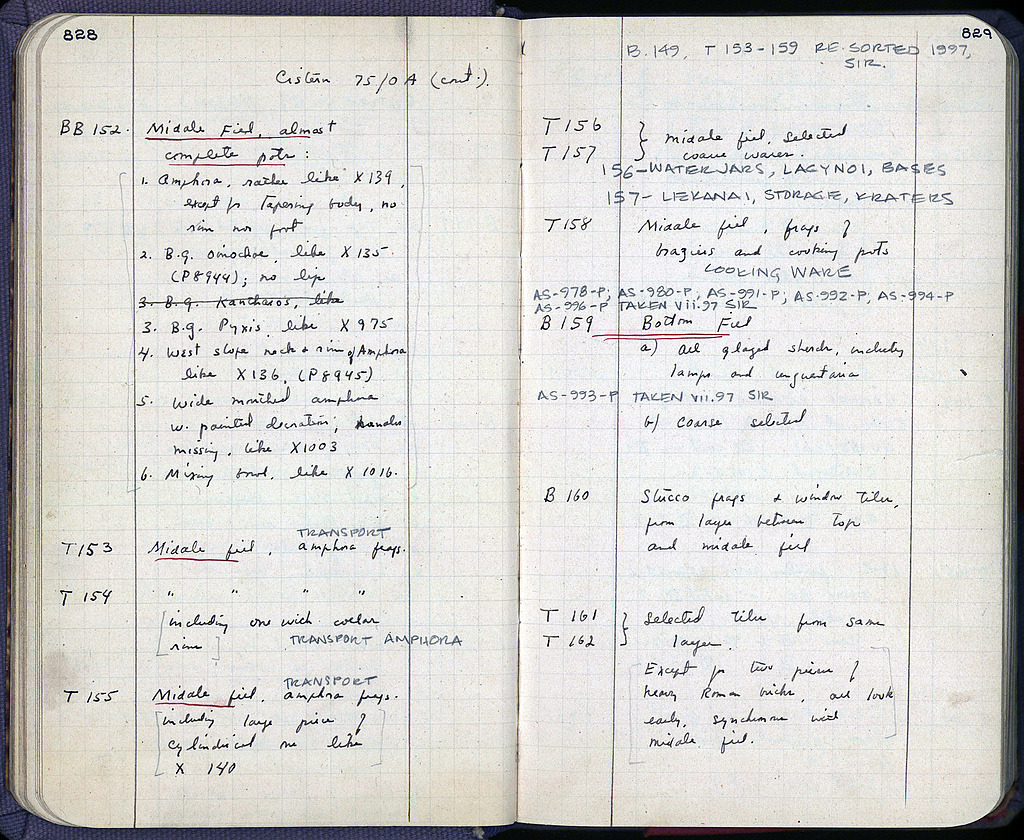 828
Cistern 75/0 A (cont.).
BB 152. Middle Fill, almost
complete pots :
1. Amphora, rather like X 139,
except for tapering body, no
rim nor foot
2. B.g. oinochoe, like X 135
(P8944); no lip
3. B.g. Kantharos, like
3. B.g. Pyxis like X 975
4. West slope neck & rim of Amphora
like X 136, (P8945)
5. Wide mouthed amphora
w. painted decoration, handles
missing, like X 1003
6. Mixing bowl, like X 1016.
TRANSPORT
T 153 Middle fill, amphora frags.
T 154 " " " "
[including one with collar
rim] TRANSPORT AMPHORA
TRANSPORT
T 155 Middle fill, amphora frags.
[including large piece of
cylindrical one like
X 140
829
B.149, T 153-159 RE-SORTED 1997,
SIR.
T 156 } middle fill, selected
T 157 coarse wares.
156-WATERJARS, LAGYNOI, BASES
157- LEKANAI, STORAGE, KRATERS
T 158 Middle fill, frags of
braziers and cooking pots
COOKING WARE
AS-978-P; AS-980-P; AS-991-P; AS-992-P; AS-994-P
AS-996-P TAKEN VII.97 SIR
B 159 Bottom Fill
a) all glazed sherds, including
lamps and unguentaria
AS-993-P TAKEN VII.97 SIR
b) coarse selected
B 160 Stucco frags & window tiles,
from layer between top
and middle fill
T 161 } Selected tiles from same
T 162 layer.
[Except for two pieces of
heavy Roman bricks, all look
early, synchronous with
middle fill.]